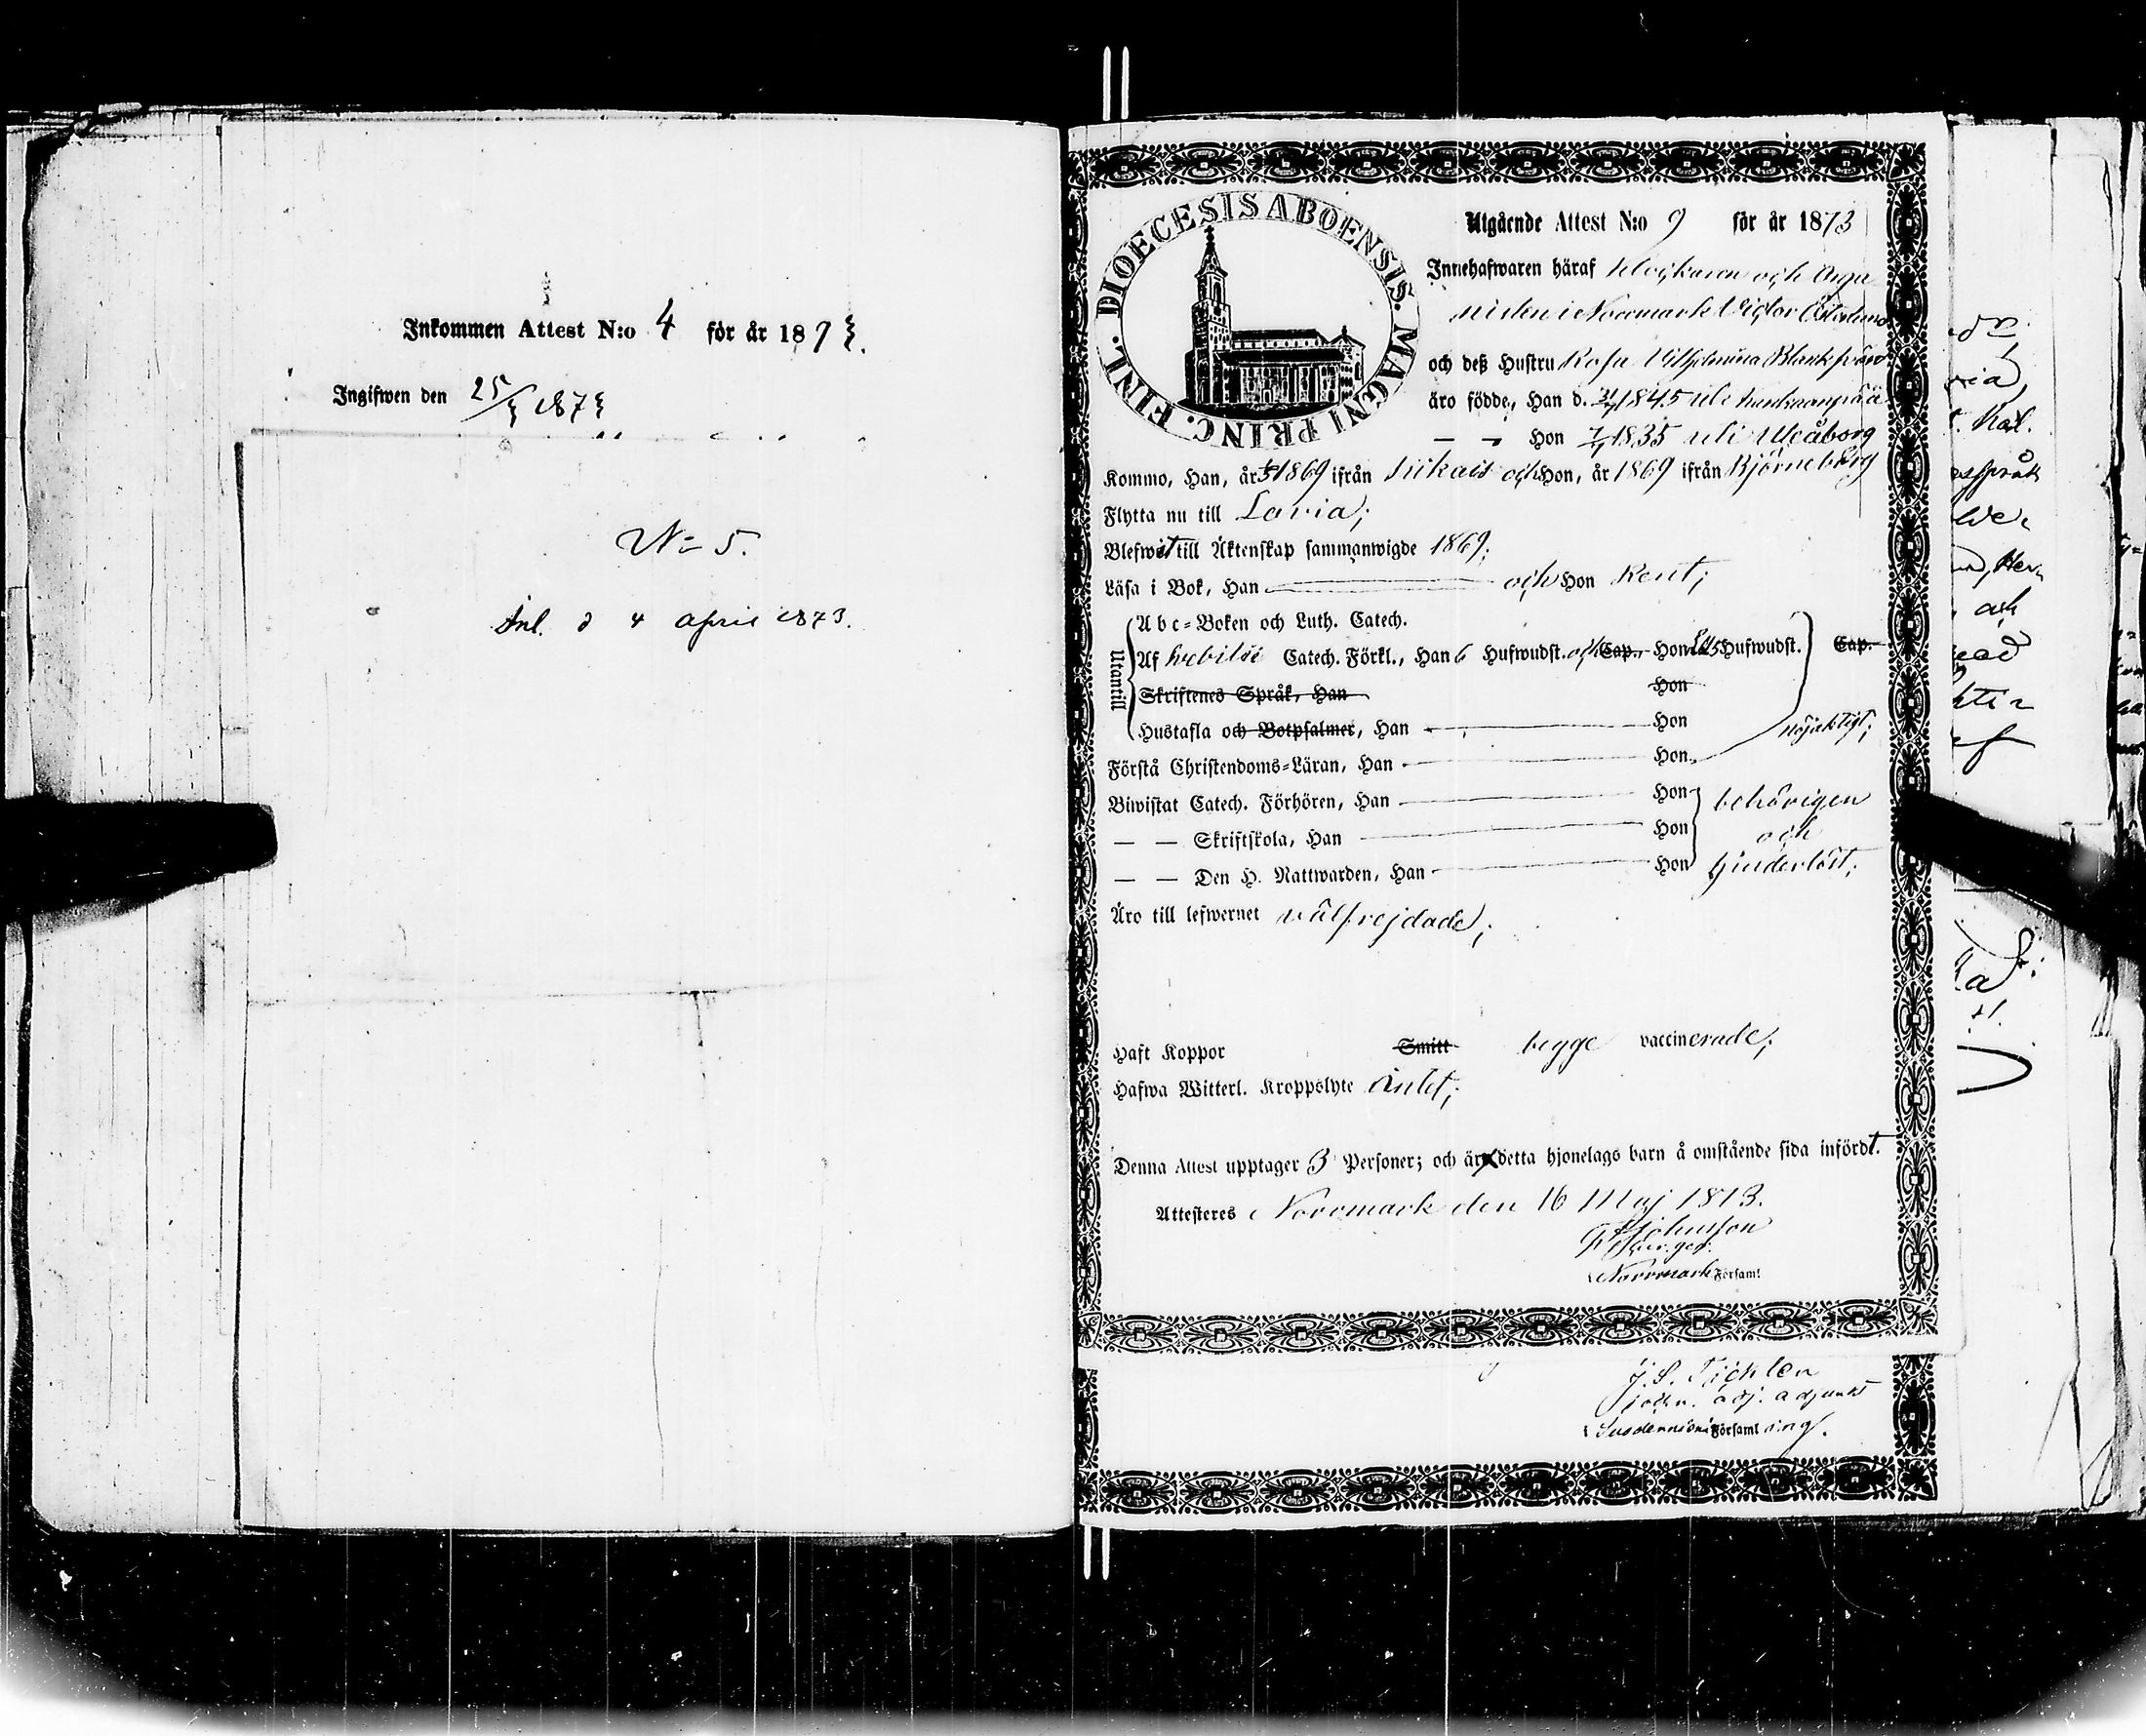 Inkommen Attest N:o 4 för år 1873.
Ingifwen den 25/3 1873
N= 5.
Inl. d 4 april 1873.
DIOECESIS ABOENSIS. MAGNI PRINC. FINL.
Utgående Attest N:o 9 för år 1873
Innehafwaren häraf Klockaren och Orga
nisten i Norrmark Victor Österlund
och deß Hustru Rosa Vilhelmina Blankspärr
äro födde, Han d. 1845 uti Kankaanpää
— — Hon 1835 uti Uleåborg
Kommo, Han, år 1869 ifrån Siikais och Hon, år 1869 ifrån Björneborg
Flytta nu till Lavia;
Blefwit till Äktenskap sammanwigde 1869;
Läsa i Bok, Han — och Hon Rent;
Utantill
Abc=Boken och Luth. Catech.
Af Svebilii Catech. Förkl., Han 6 Hufwudst. och Cap. Hon 5 Hufwudst. Cap.
Skriftenes Språk, Han Hon
Hustafla och Botpsalmer, Han — Hon nöjaktigt;
Förstå Christendoms=Läran, Han — Hon
Biwistat Catech. Förhören, Han — Hon behörigen
— — Skriftskola, Han — Hon och
— — Den H. Nattwarden, Han — Hon hinderlöst;
Äro till lefwernet wälfrejdade;
Haft Koppor Smitt begge vaccinerade;
Hafwa Witterl. Kroppslyte intet;
Denna Attest upptager 3 Personer; och är detta hjonelags barn å omstående sida infördt.
Attesteres Norrmark den 16 Maj 1873.
Johnsson
Norrmark Församl
J. S. Tichlen
adj. adjunkt
Suodenniemi Församling.